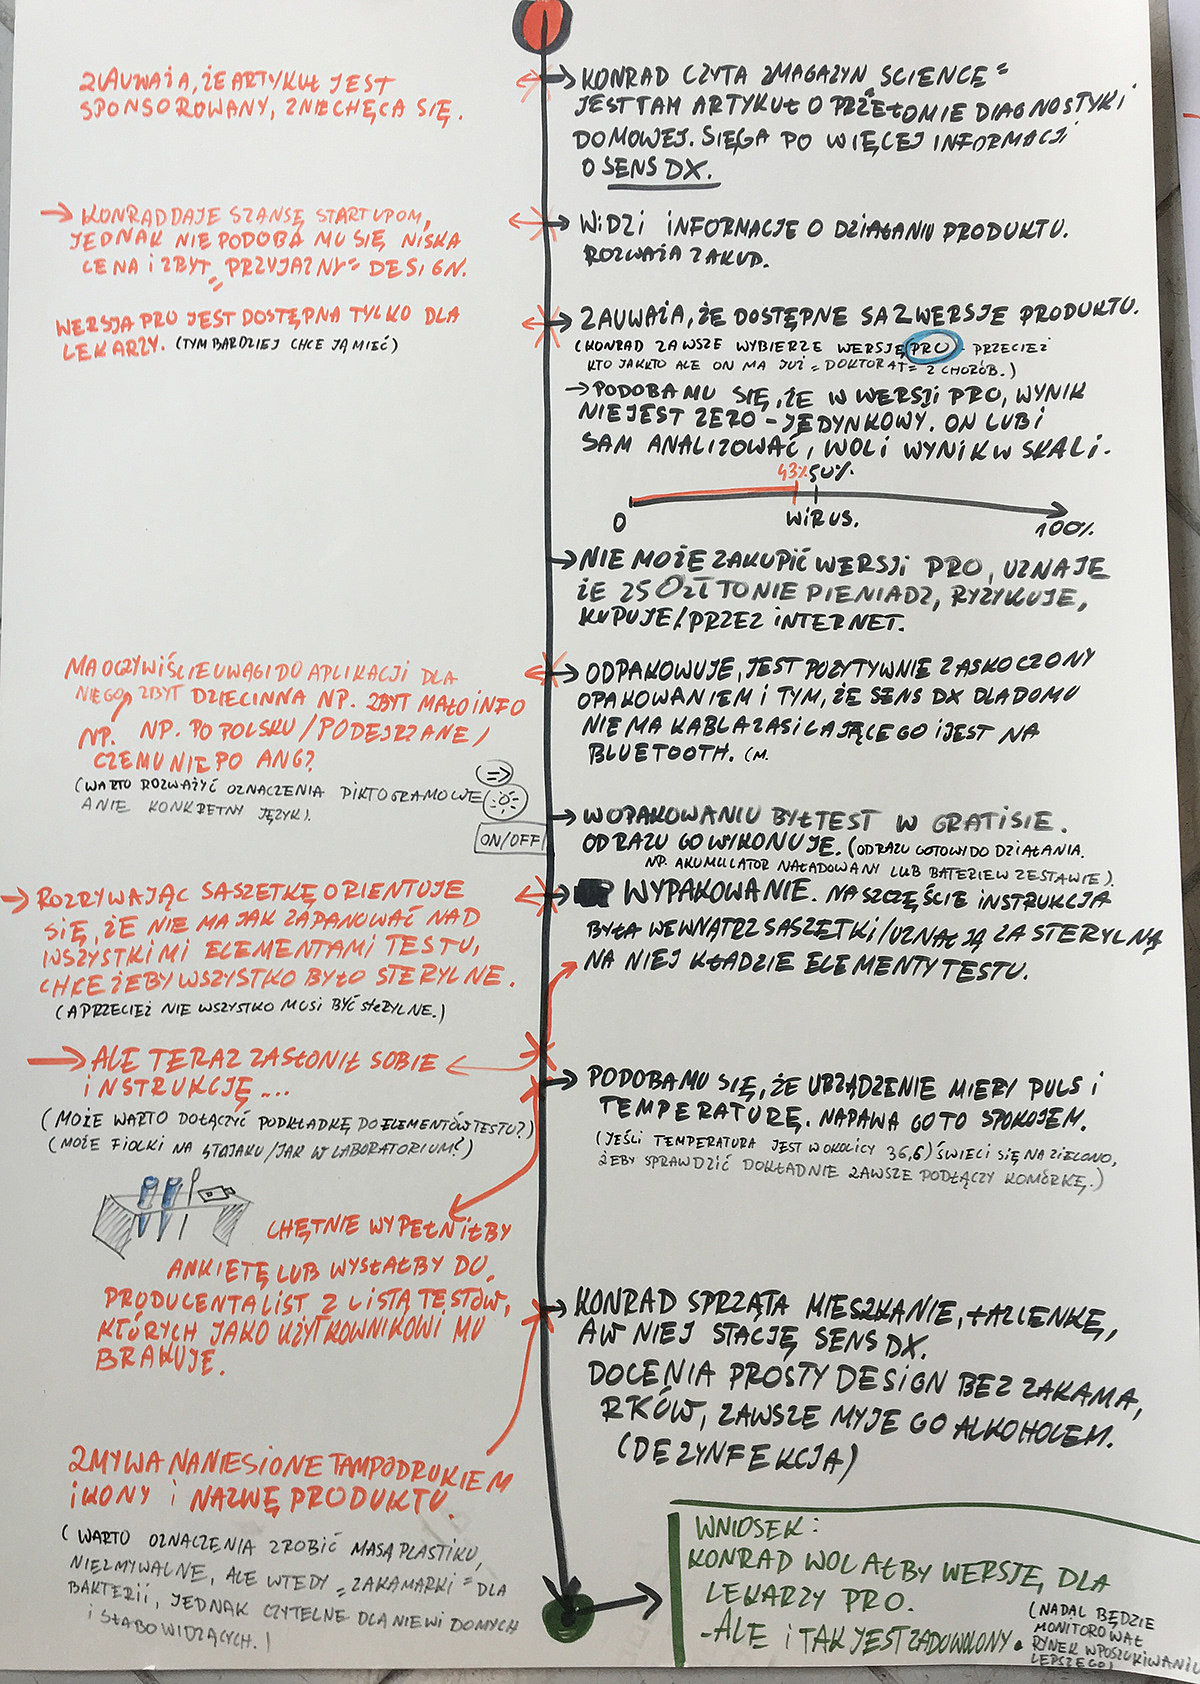 ZAUWAŻA, ŻE ARTYKUŁ JEST
SPONSOROWANY, ZNIECHĘCA SIĘ.
KONRAD CZYTA „MAGAZYN SCIENCE"
JEST TAM ARTYKUŁ O PRZEŁOMIE DIAGNOSTYKI
DOMOWEJ. SIĘGA PO WIĘCEJ INFORMACJI
O SENS DX.
→ KONRAD DAJE SZANSĘ STARTUPOM,
JEDNAK NIE PODOBA MU SIĘ NISKA
CENA I ZBYT „PRZYJAZNY" DESIGN.
WIDZI INFORMACJE O DZIAŁANIU PRODUKTU.
ROZWAŻA ZAKUP.
WERSJA PRO JEST DOSTĘPNA TYLKO DLA
LEKARZY. (TYM BARDZIEJ CHCE JĄ MIEĆ)
ZAUWAŻA, ŻE DOSTĘPNE SĄ 2 WERSJE PRODUKTU.
(KONRAD ZAWSZE WYBIERZE WERSJĘ PRO PRZECIEŻ
KTO JAK KTO ALE ON MA JUŻ „DOKTORAT" Z CHORÓB.)
→ PODOBA MU SIĘ, ŻE W WERSJI PRO, WYNIK
NIE JEST ZERO-JEDYNKOWY. ON LUBI
SAM ANALIZOWAĆ, WOLI WYNIK W SKALI.
43% 50%
0 WIRUS. 100%
NIE MOŻE ZAKUPIĆ WERSJI PRO, UZNAJE
ŻE 250ZŁ TO NIE PIENIĄDZ, RYZYKUJE,
KUPUJE/PRZEZ INTERNET.
MA OCZYWIŚCIE UWAGI DO APLIKACJI DLA
NIEGO ZBYT DZIECINNA NP. ZBYT MAŁO INFO
NP. NP. PO POLSKU/PODEJRZANE/
CZEMU NIE PO ANG?
(WARTO ROZWAŻYĆ OZNACZENIA PIKTOGRAMOWE
A NIE KONKRETNY JĘZYK).
ON/OFF
ODPAKOWUJE, JEST POZYTYWNIE ZASKOCZONY
OPAKOWANIEM I TYM, ŻE SENS DX DLA DOMU
NIE MA KABLA ZASILAJĄCEGO I JEST NA
BLUETOOTH. (M.
W OPAKOWANIU BYŁ TEST W GRATISIE.
OD RAZU GO WYKONUJE. (OD RAZU GOTOWY DO DZIAŁANIA.
NP. AKUMULATOR NAŁADOWANY LUB BATERIE W ZESTAWIE).
→ ROZRYWAJĄC SASZETKĘ ORIENTUJE
SIĘ, ŻE NIE MA JAK ZAPANOWAĆ NAD
WSZYSTKIMI ELEMENTAMI TESTU,
CHCE ŻEBY WSZYSTKO BYŁO STERYLNE.
(A PRZECIEŻ NIE WSZYSTKO MUSI BYĆ STERYLNE.)
WYPAKOWANIE. NA SZCZĘŚCIE INSTRUKCJA
BYŁA WEWNĄTRZ SASZETKI/UZNAŁ JĄ ZA STERYLNĄ
NA NIEJ KŁADZIE ELEMENTY TESTU.
→ ALE TERAZ ZASŁONIŁ SOBIE
INSTRUKCJĘ...
(MOŻE WARTO DOŁĄCZYĆ PODKŁADKĘ DO ELEMENTÓW TESTU?)
(MOŻE FIOLKI NA STOJAKU/JAK W LABORATORIUM?)
PODOBA MU SIĘ, ŻE URZĄDZENIE MIERY PULS I
TEMPERATURĘ. NAPAWA GO TO SPOKOJEM.
(JEŚLI TEMPERATURA JEST W OKOLICY 36,6) ŚWIECI SIĘ NA ZIELONO,
ŻEBY SPRAWDZIĆ DOKŁADNIE ZAWSZE PODŁĄCZY KOMÓRKĘ.)
CHĘTNIE WYPEŁNIŁBY
ANKIETĘ LUB WYSŁAŁBY DO
PRODUCENTA LIST Z LISTĄ TESTÓW,
KTÓRYCH JAKO UŻYTKOWNIKOWI MU
BRAKUJE.
KONRAD SPRZĄTA MIESZKANIE, ŁAZIENKĘ,
A W NIEJ STACJĘ SENS DX.
DOCENIA PROSTY DESIGN BEZ ZAKAMA,
RKÓW, ZAWSZE MYJE GO ALKOHOLEM.
(DEZYNFEKCJA)
ZMYWA NANIESIONE TAMPODRUKIEM
IKONY I NAZWĘ PRODUKTU.
(WARTO OZNACZENIA ZROBIĆ MASĄ PLASTIKU,
NIEZMYWALNE, ALE WTEDY „ZAKAMARKI" DLA
BAKTERII, JEDNAK CZYTELNE DLA NIEWIDOMYCH
I SŁABOWIDZĄCYCH.)
WNIOSEK:
KONRAD WOLAŁBY WERSJĘ, DLA
LEKARZY PRO.
- ALE I TAK JEST ZADOWOLONY.
(NADAL BĘDZIE
MONITOROWAŁ
RYNEK W POSZUKIWANIU
LEPSZEGO)